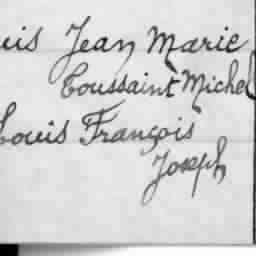 uis Jean Marie
Toussaint Michel
Louis François
Joseph